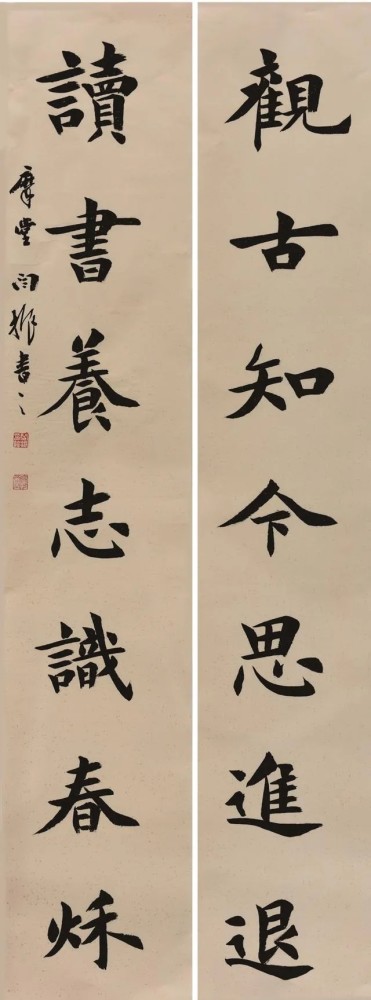 觀古知今思進退
讀書養志識春秌
摩堂 白 書之